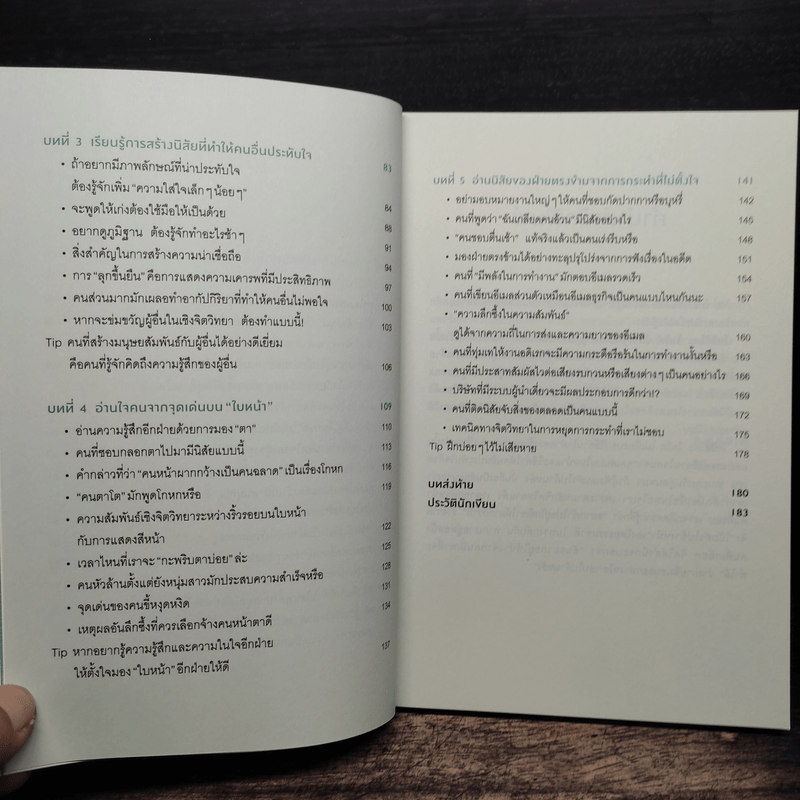 บทที่ 3 เรียนรู้การสร้างนิสัยที่ทำให้คนอื่นประทับใจ 83
• ถ้าอยากมีภาพลักษณ์ที่น่าประทับใจ
ต้องรู้จักเพิ่ม “ความใส่ใจเล็กๆ น้อยๆ” 84
• จะพูดให้เก่งต้องใช้มือให้เป็นด้วย 88
• อยากดูภูมิฐาน ต้องรู้จักทำอะไรช้าๆ 91
• สิ่งสำคัญในการสร้างความน่าเชื่อถือ 94
• การ “ลุกขึ้นยืน” คือการแสดงความเคารพที่มีประสิทธิภาพ 97
• คนส่วนมากมักเผลอทำอากัปกิริยาที่ทำให้คนอื่นไม่พอใจ 100
• หากจะข่มขวัญผู้อื่นในเชิงจิตวิทยา ต้องทำแบบนี้! 103
Tip คนที่สร้างมนุษยสัมพันธ์กับผู้อื่นได้อย่างดีเยี่ยม
คือคนที่รู้จักคิดถึงความรู้สึกของผู้อื่น 106
บทที่ 4 อ่านใจคนจากจุดเด่นบน “ใบหน้า” 109
• อ่านความรู้สึกอีกฝ่ายด้วยการมอง “ตา” 110
• คนที่ชอบกลอกตาไปมามีนิสัยแบบนี้ 113
• คำกล่าวที่ว่า “คนหน้าผากกว้างเป็นคนฉลาด” เป็นเรื่องโกหก 116
• “คนตาโต” มักพูดโกหกหรือ 119
• ความสัมพันธ์เชิงจิตวิทยาระหว่างริ้วรอยบนใบหน้า
กับการแสดงสีหน้า 122
• เวลาไหนที่เราจะ “กะพริบตาบ่อย” ล่ะ 125
• คนหัวล้านตั้งแต่ยังหนุ่มสาวมักประสบความสำเร็จหรือ 128
• จุดเด่นของคนขี้หงุดหงิด 131
• เหตุผลอันลึกซึ้งที่ควรเลือกจ้างคนหน้าตาดี 134
Tip หากอยากรู้ความรู้สึกและความในใจอีกฝ่าย
ให้ตั้งใจมอง “ใบหน้า” อีกฝ่ายให้ดี 137
บทที่ 5 อ่านนิสัยของฝ่ายตรงข้ามจากการกระทำที่ไม่ตั้งใจ 141
• อย่ามอบหมายงานใหญ่ๆ ให้คนที่ชอบกัดปากกาหรือบุหรี่ 142
• คนที่พูดว่า “ฉันเกลียดคนอ้วน” มีนิสัยอย่างไร 145
• “คนชอบตื่นเช้า” แท้จริงแล้วเป็นคนเร่งรีบหรือ 148
• มองฝ่ายตรงข้ามได้อย่างทะลุปรุโปร่งจากการฟังเรื่องในอดีต 151
• คนที่ “มีพลังในการทำงาน” มักตอบอีเมลรวดเร็ว 154
• คนที่เขียนอีเมลส่วนตัวเหมือนอีเมลธุรกิจเป็นคนแบบไหนกันนะ 157
• “ความลึกซึ้งในความสัมพันธ์”
ดูได้จากความถี่ในการส่งและความยาวของอีเมล 160
• คนที่ทุ่มเทให้งานอดิเรกจะมีความกระตือรือร้นในการทำงานงั้นหรือ 163
• คนที่มีประสาทสัมผัสไวต่อเสียงรบกวนหรือเสียงต่างๆ เป็นคนอย่างไร 166
• บริษัทที่มีระบบผู้นำเดี่ยวจะมีผลประกอบการดีกว่า!? 169
• คนที่ติดนิสัยจับสิ่งของตลอดเป็นคนแบบนี้ 172
• เทคนิคทางจิตวิทยาในการหยุดการกระทำที่เราไม่ชอบ 175
Tip ฝึกบ่อยๆ ไว้ไม่เสียหาย 178
บทส่งท้าย 180
ประวัตินักเขียน 183